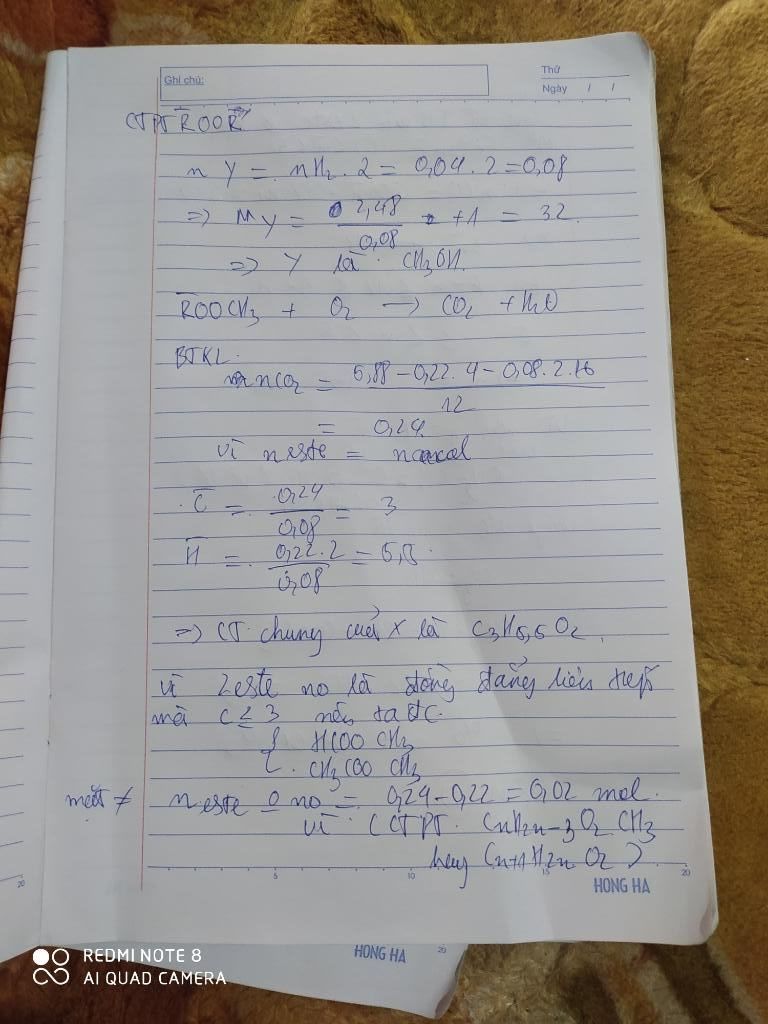 Ghi chú:
Thứ
Ngày / /
CTPT R̅OOR̅'
n Y = nH₂ . 2 = 0,04 . 2 = 0,08
=> MY = 2,48 / 0,08 + 1 = 32
=> Y là CH₃OH.
R̅OOCH₃ + O₂ → CO₂ + H₂O
BTKL.
nCO₂ = 5,88 - 0,22.4 - 0,08.2.16 / 12
= 0,24
vì n este = n ancol
C̅ = 0,24 / 0,08 = 3
H̅ = 0,22.2 / 0,08 = 5,5.
=> CT chung của X là C₃H₅,₅O₂.
vì 2 este no là đồng đẳng liên tiếp
mà C ≤ 3 nên ta ĐC.
{ HCOO CH₃
CH₃COO CH₃
mặt ≠ n este 0 no = 0,24-0,22 = 0,02 mol.
vì (CTPT. CnH2n-3O₂ CH₃
hay Cn+1H2nO₂)
5 10 15 20
HONG HA
20
HONG HA 20
REDMI NOTE 8
AI QUAD CAMERA